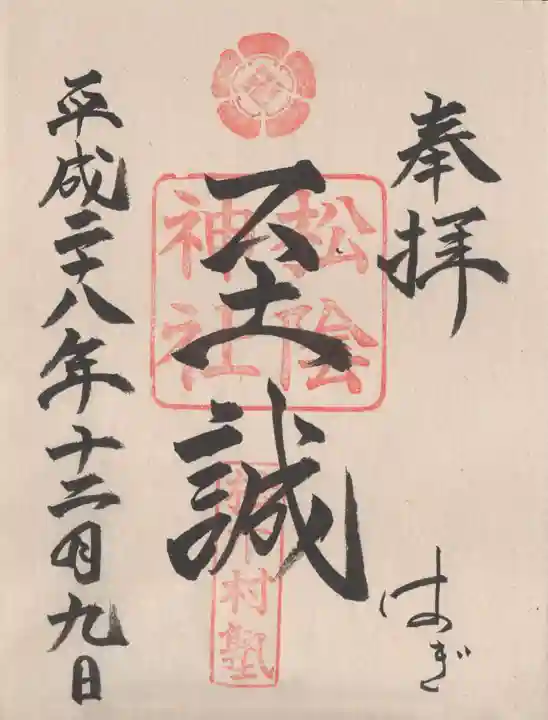 奉拝
はぎ
松陰
神社
至誠
松下村塾
平成二十八年十二月九日